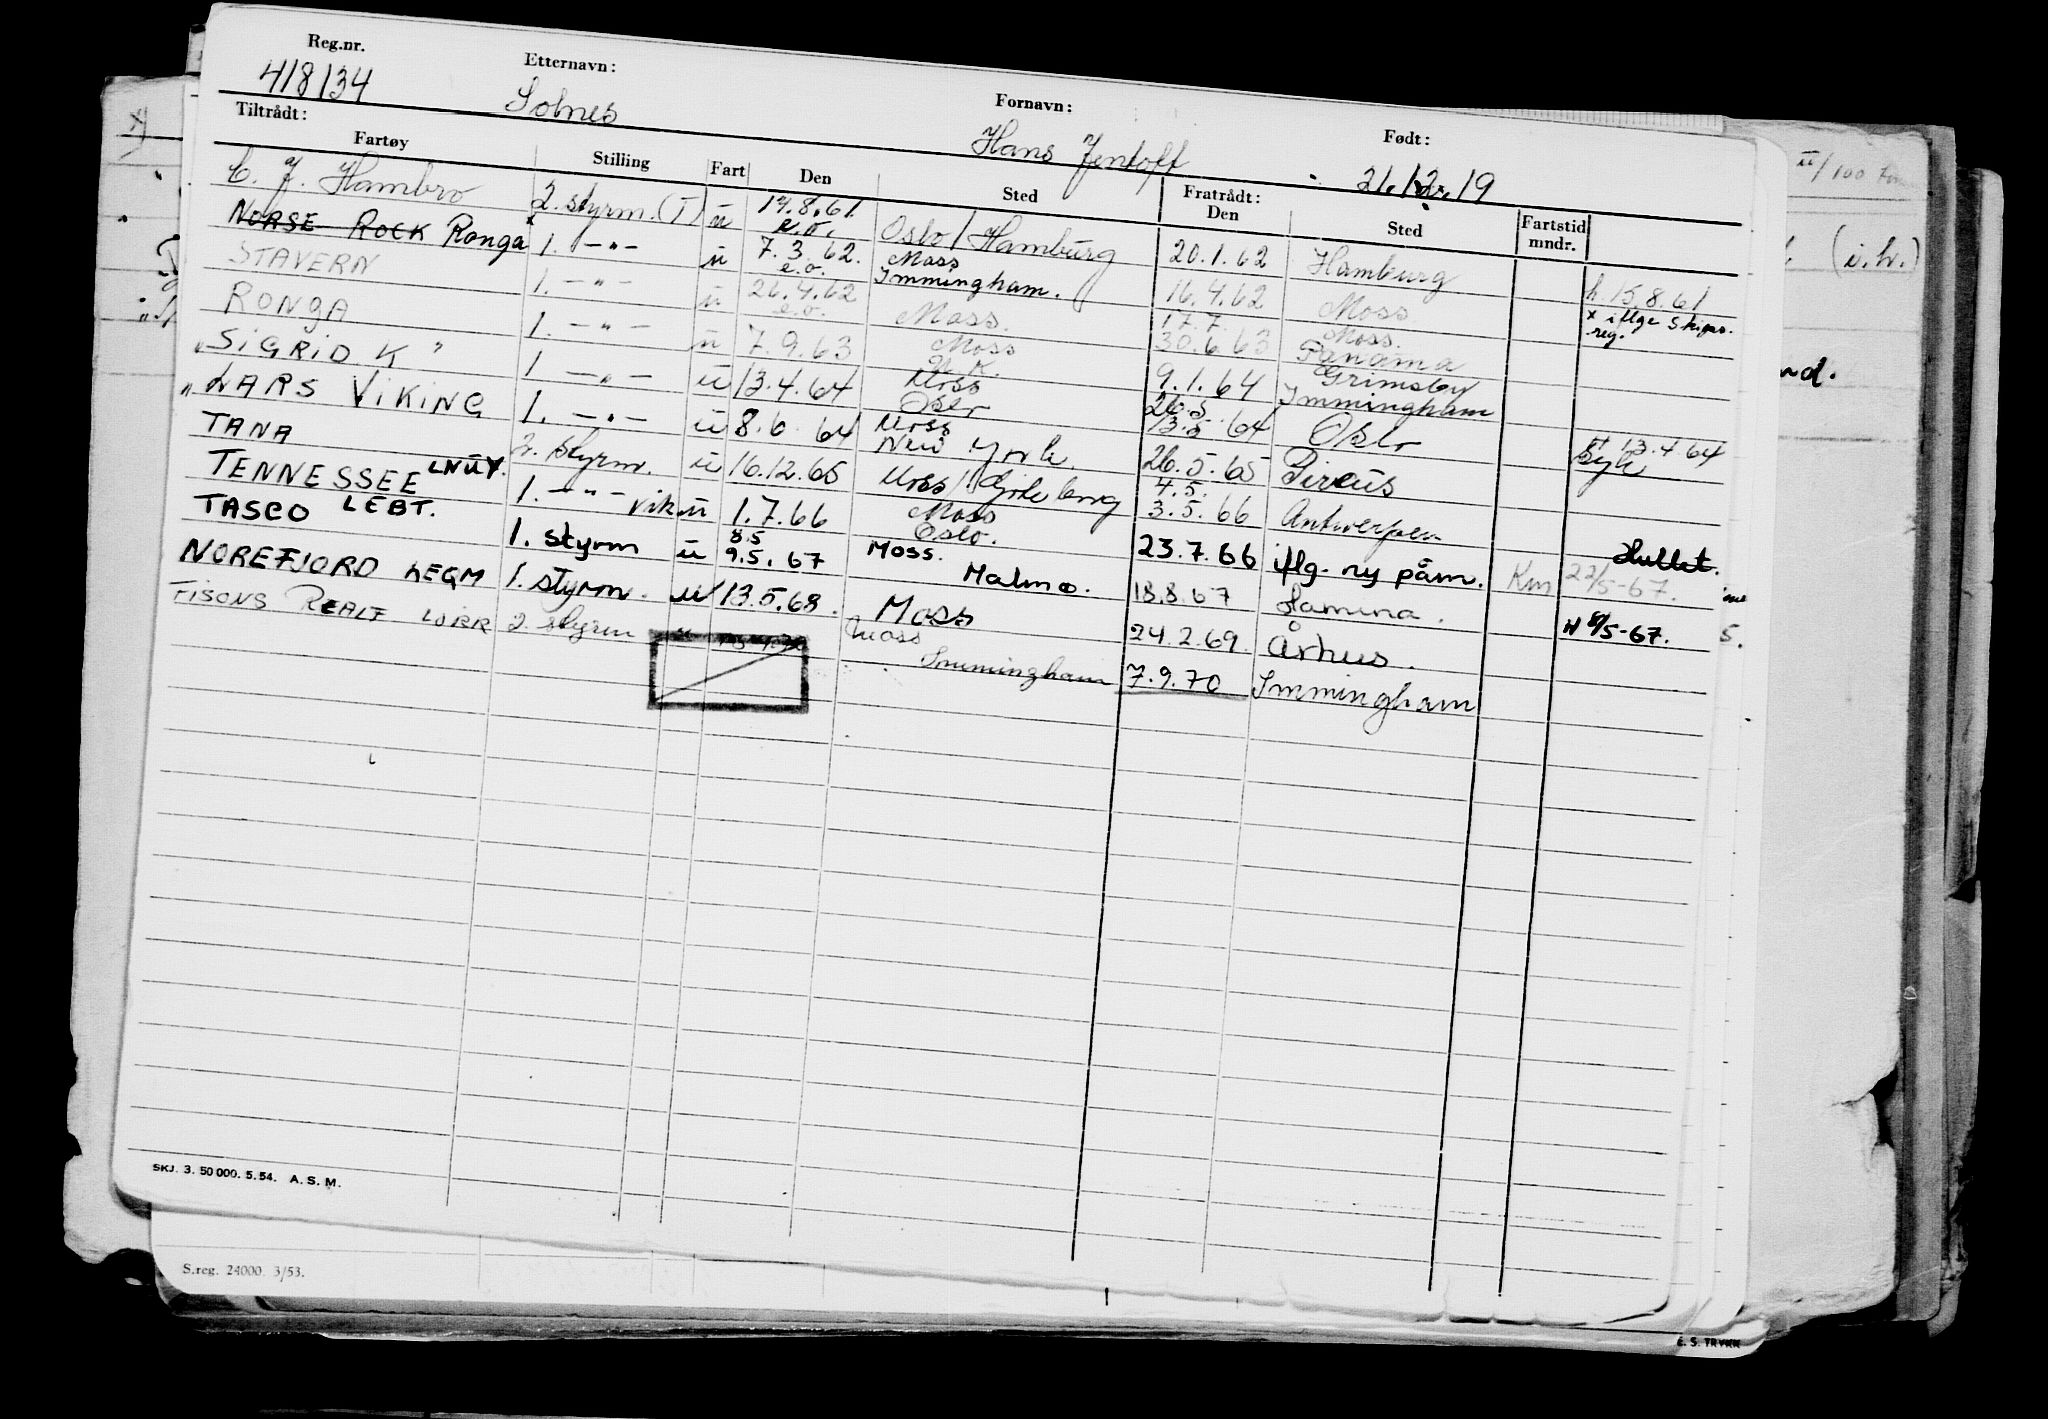 Reg.nr. Etternavn: Fornavn: Født:
418134 Solnes Hans Jentoft 21.12.19
Tiltrådt: Fratrådt:
Fartøy Stilling Fart Den Sted Den Sted Fartstid mndr.
C. J. Hambro 2. styrm. (T) u 14.8.61. Oslo / Hamburg 20.1.62 Hamburg h. 15.8.61
NORSE ROCK Ronga x 1. -"- u e.o. 7.3.62. Moss Immingham. 16.4.62 Moss x iflge Skips. reg.
STAVERN 1. -"- u e.o. 26.4.62 Moss. 17.7. 30.6.63 Moss. Panama
RONGA 1. -"- u e.o. 7.9.63 Moss U.K. 9.1.64 Grimsby Immingham
"SIGRID K" 1 -"- u 13.4.64 Moss Oslo 26.5 13.5.64 Oslo 13.4.64 Syk
"LARS VIKING 1. -"- u 8.6.64 Moss New York. 26.5.65 Pireus
TANA 2. styrm. u 16.12.65 Moss / Gøteborg 4.5. 3.5.66 Antwerpen
TENNESSEE LNUY. 1. -"- vik u 1.7.66 Moss Oslo. 23.7.66 iflg. ny påm. Hullet.
TASCO LEBT. 1. styrm u 8.5 9.5.67 Moss. Malmø. 18.8.67 Hamina. Km 22/5-67.
NOREFJORD LEQM 1. styrm. u 13.5.68. Moss 24.2.69. Århus. 8/5-67.
FISONS 2. styrm u Moss Immingham 7.9.70 Immingham
SKJ. 3. 50 000. 5. 54. A. S. M.
S.reg. 24000. 3/53.
E. S. TRYKK
(i.h.)
nd.
5.